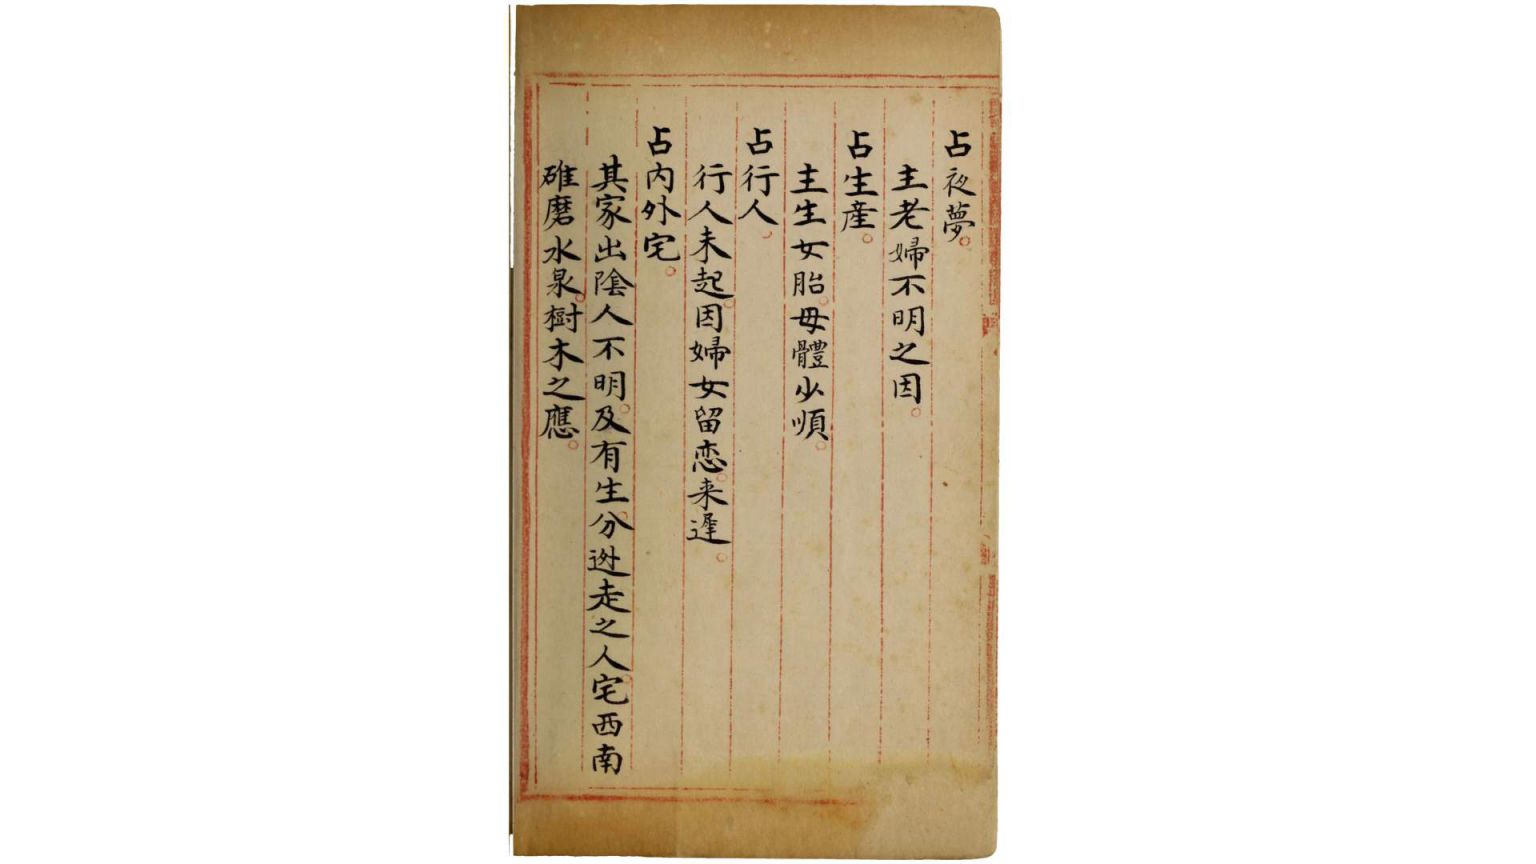 占夜夢。
主老婦不明之因。
占生産。
主生女胎。母體少順。
占行人。
行人未起。因婦女留恋。来遲。
占内外宅。
其家出陰人不明。及有生分逃走之人。宅西南
碓磨水泉。樹木之應。